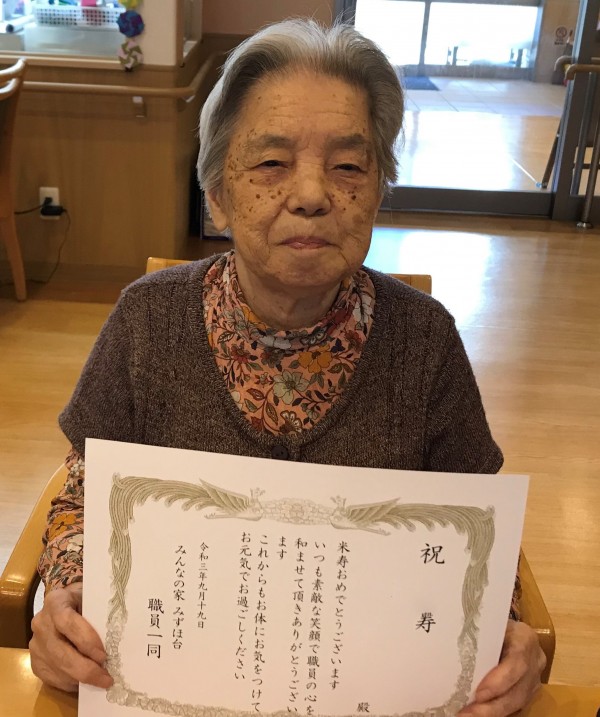 祝寿
殿
米寿おめでとうございます
いつも素敵な笑顔で職員の心を
和ませて頂きありがとうござい
ます
これからもお体にお気をつけて
お元気でお過ごしください
令和三年九月十九日
みんなの家 みずほ台
職員一同